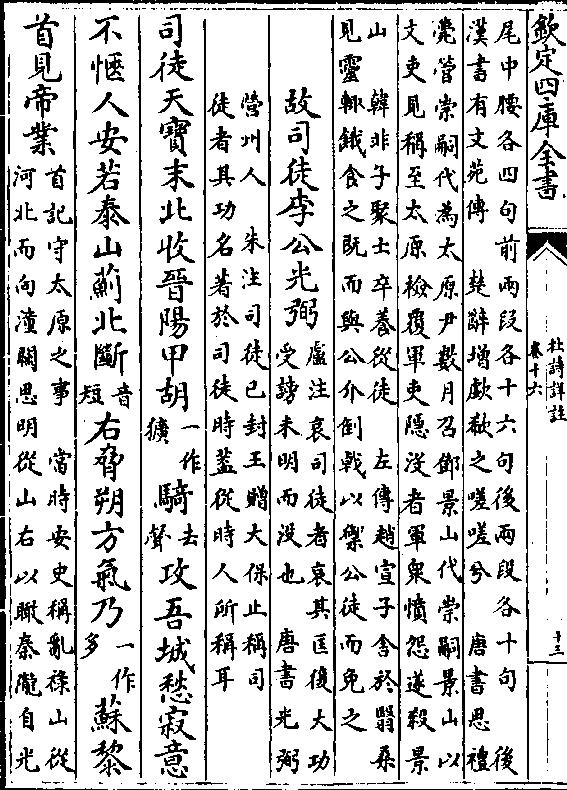 欽定四庫全書
杜詩詳註
卷十六
十三
尾中腰各四句前兩段各十六句後兩段各十句 後
漢書有文苑傳 楚辭增歔欷之嗟嗟兮 唐書思禮
薨管崇嗣代為太原尹數月召鄧景山代崇嗣景山以
文吏見稱至太原檢覆軍吏隱沒者軍衆憤怨遂殺景
山 韓非子聚士卒養從徒 左傳趙宣子舍於翳桑
見靈輒餓食之既而與公介倒戟以禦公徒而免之
故司徒李公光弼 盧注哀司徒者哀其匡復大功
受謗未明而沒也 唐書光弼
營州人 朱注司徒已封王贈大保止稱司
徒者其功名著於司徒時蓋從時人所稱耳
司徒天寶末北收晉陽甲胡一作獷騎去聲攻吾城愁寂意
不愜人安若泰山薊北斷音短右脅朔方氣乃一作多蘇黎
首見帝業 首記守太原之事 當時安史稱亂祿山從
河北而向潼關思明從山右以瞰秦隴自光